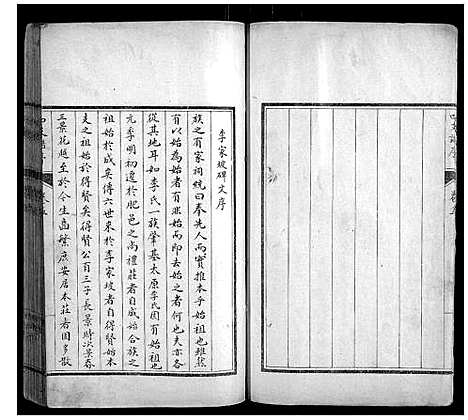 李家坡碑文序
族之有家祠統曰奉先人而實推本乎始祖也雖然
有以始為始者有非始而即去始之者何也夫亦各
從其地耳如李氏一族肇基太原李氏固有始祖
元季明初遷於肥邑之尚禮莊者自成始合族之
祖始於成矣傳六世來於李家坡者自得賢始來
支之祖始於得賢矣得賢公有三子長景時次景春
三景花越至於今生齒繁庶安居本莊者固多散